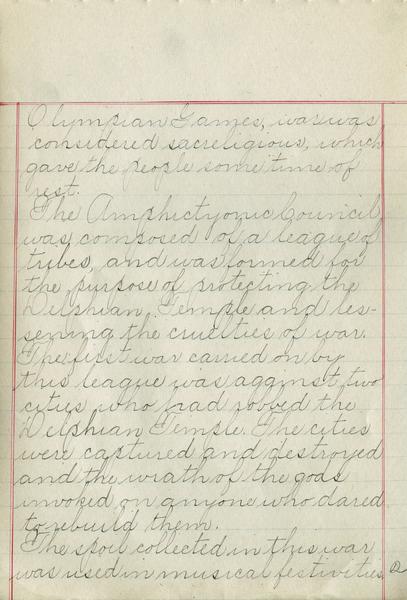 Olympian Games, war was
considered sacreligious, which
gave the people some time of
rest.
The Amphictyonic Council
was composed of a league of
tribes, and was formed for
the purpose of protecting the
Delphian Temple and les-
sening the cruelties of war.
The first war carried on by
this league was against two
cities who had robbed the
Delphian Temple. The cities
were captured and destroyed
and the wrath of the gods
invoked on anyone who dared
to rebuild them.
The spoil collected in this war
was used in musical festivities